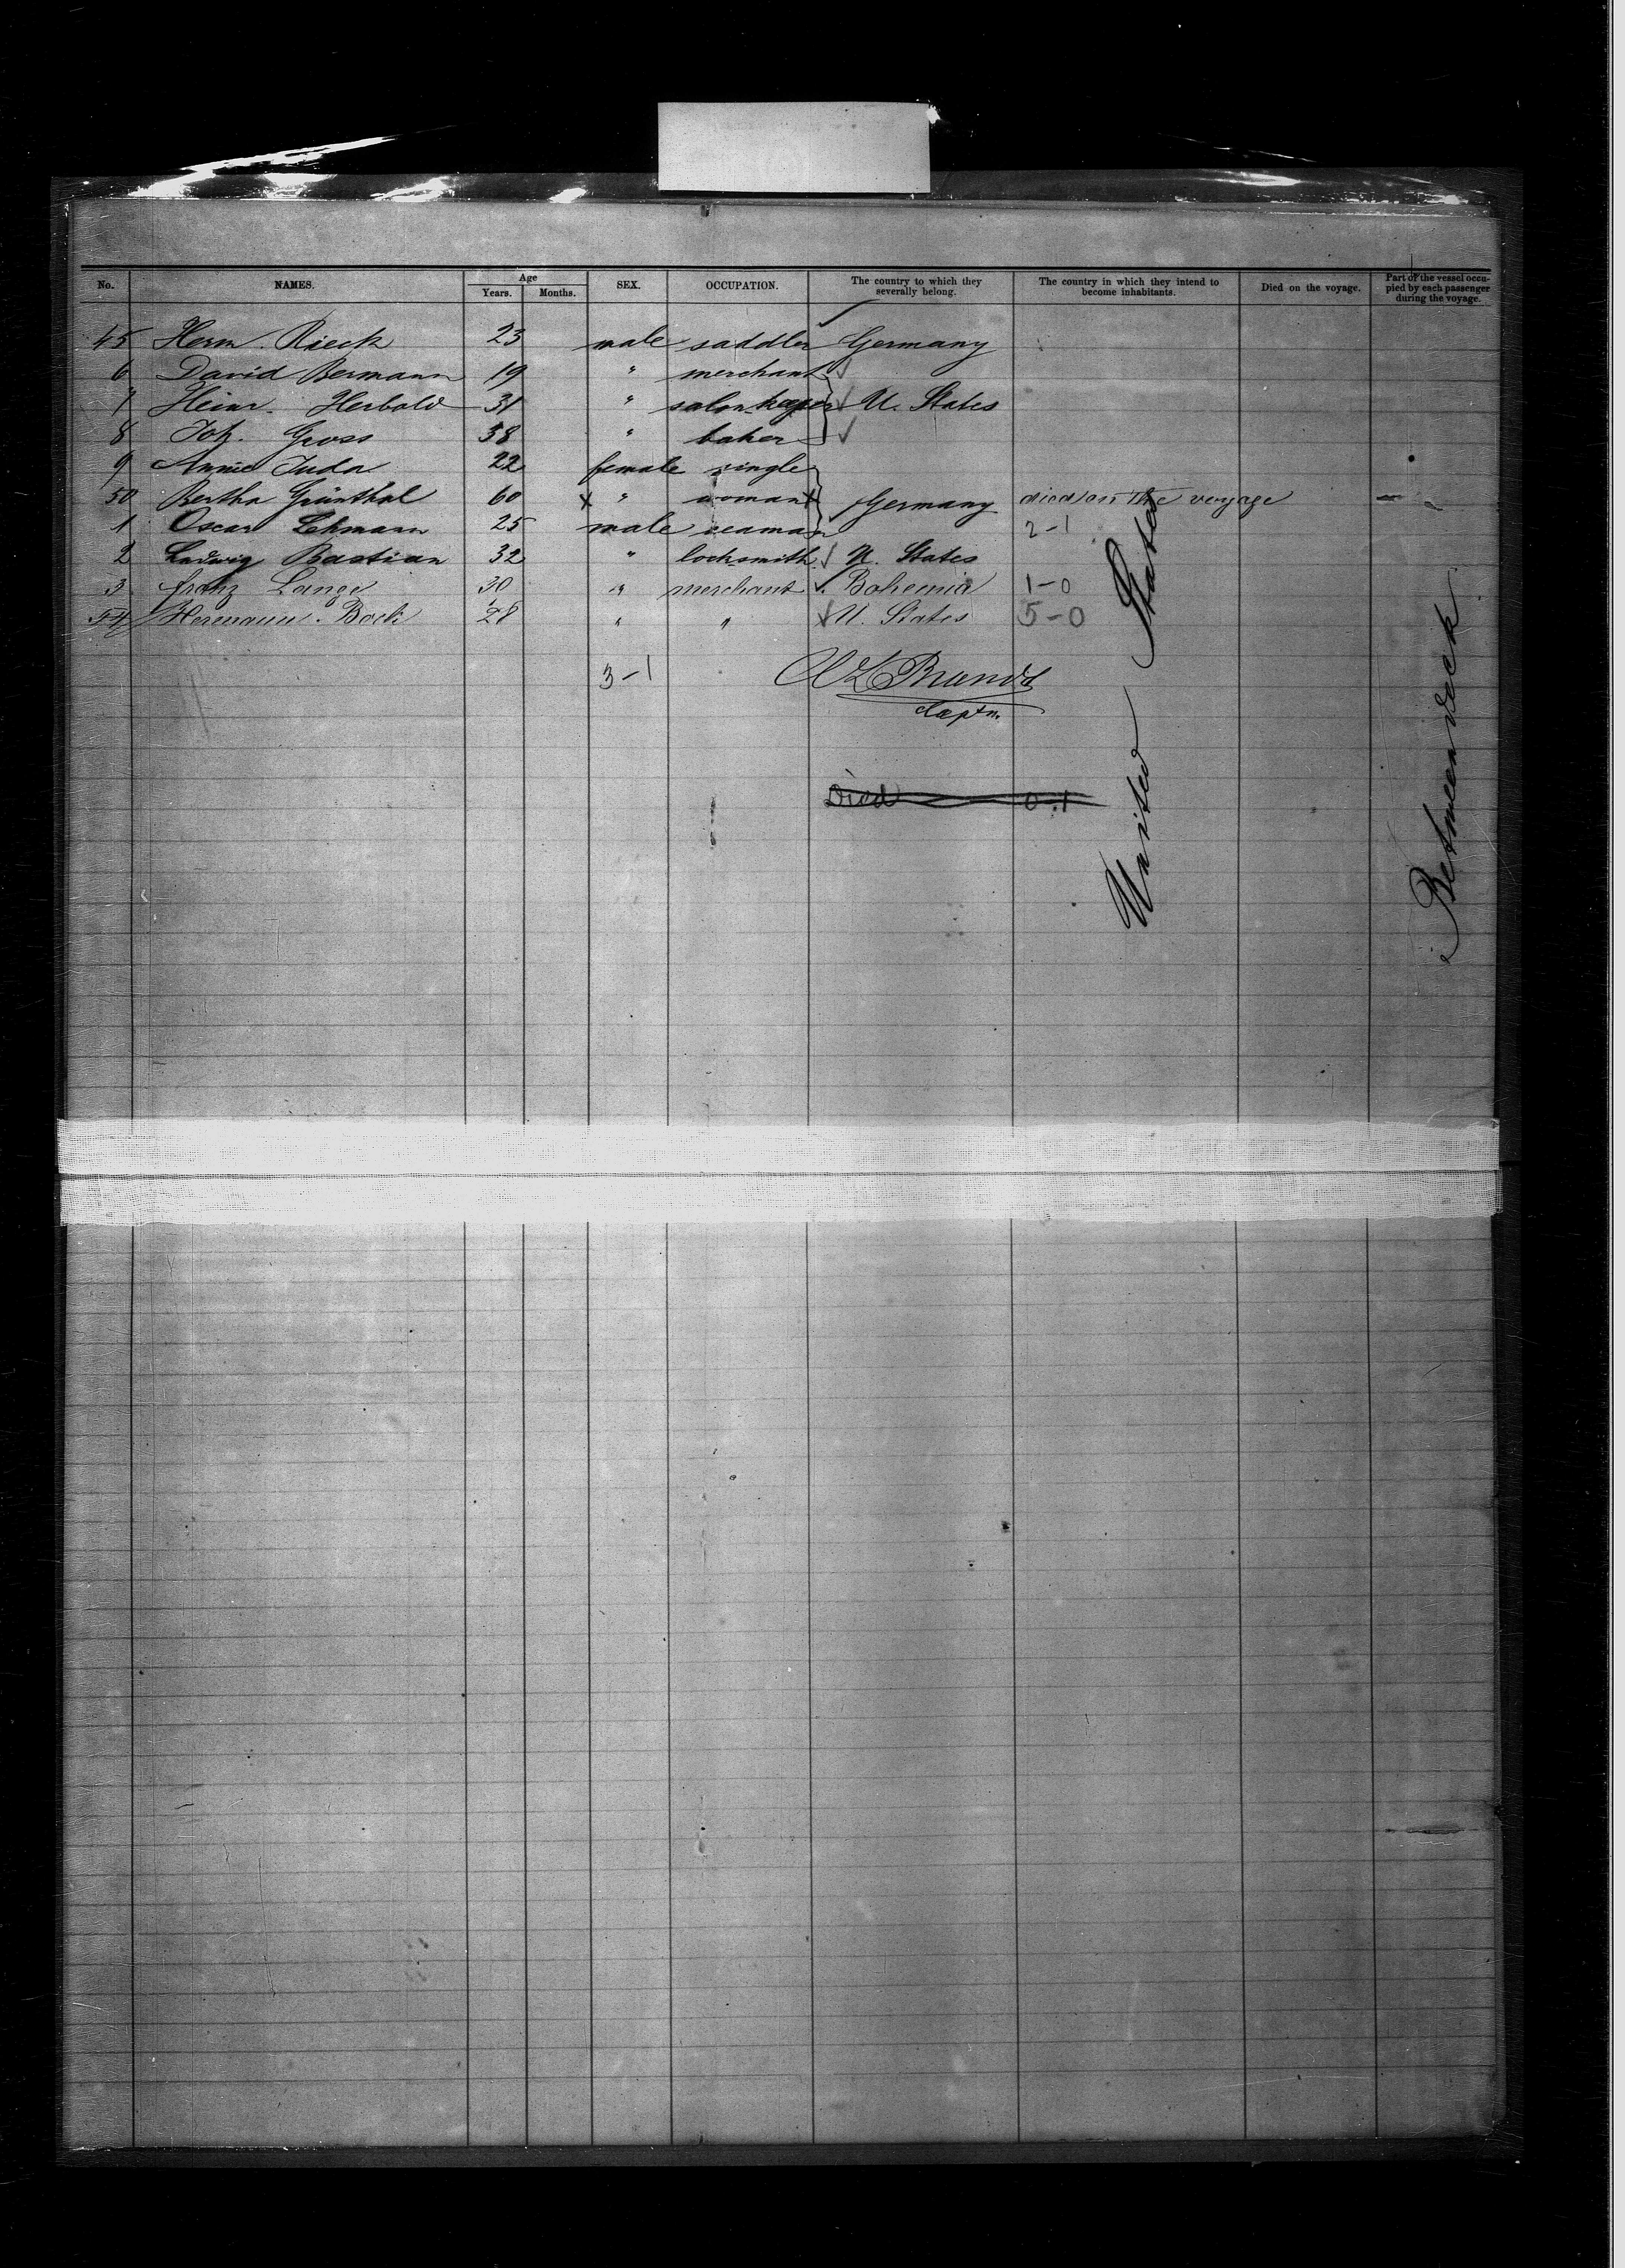 No. NAMES. Age Years. Months. SEX. OCCUPATION. The country to which they severally belong. The country in which they intend to become inhabitants. Died on the voyage. Part of the vessel occupied by each passenger during the voyage.
45 Herm. Rieck 23 male saddler Germany
6 David Bermann 19 " merchant
7 Heinr. Herbold 31 " salon-keeper U. States
8 Joh. Gross 38 " baker
9 Annie Juda 22 female single
50 Bertha Grünthal 60 x " woman x Germany died on the voyage
1 Oscar Lehmann 25 male seaman 2-1
2 Ludwig Bastian 32 " locksmith U. States
3 Franz Lange 30 " merchant Bohemia 1-0
54 Hermann Bock 28 " " U. States 5-0
3-1 Brandt
Captn.
Died 0-1
United States
Betweendeck